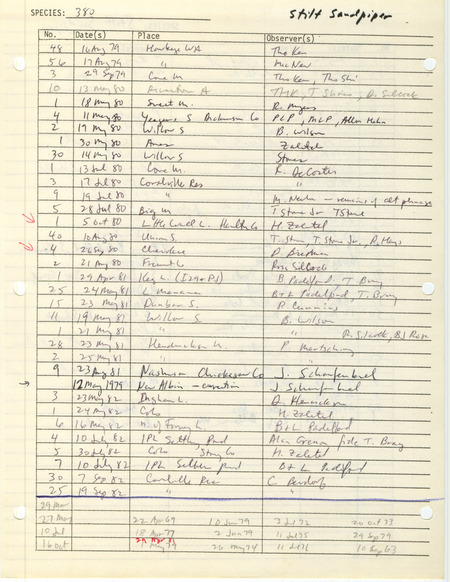 SPECIES: 380 Stilt Sandpiper
No. Date(s) Place Observer(s)
48 16 Aug 79 Hawkeye WA Tho Ken
56 17 Aug 79 " McNew
3 29 Sep 79 Cone M. Tho Ken, Tho Shi
10 13 May 80 A THK, T Shires, D. Silcock
1 18 May 80 Sweet M. R. Myers
4 11 May 80 S Dickinson Co PLP, BLP,
2 19 May 80 Willow S B. Wilson
1 30 May 80 Ames Zaletel
30 14 May 80 Willow S
1 13 Jul 80 Cone M. R. DeCoster
3 17 Jul 80 Coralville Res "
9 19 Jul 80 " M. Newlon
5 28 Jul 80 Big M T Stone Jr
1 5 Oct 80 Little Wall L. Hamilton Co H. Zaletel
40 10 Aug 80 Union S. T. Stone, T. Stone Jr., R. Myers
4 26 Sep 80 Cherokee D. Bierman
2 21 Aug 80 Fremont Co Ross Silcock
1 29 Apr 81 Keg L. (I29 + PS) B Padelford, T. Bray
25 24 May 81 L Manawa B+L Padelford, T. Bray
15 23 May 81 Dunbar S. P. Cummins
11 19 May 81 Willow S B. Wilson
1 21 May 81 " R. Silcock, BJ Rose
28 23 May 81 Hendrickson M. P. Martsching
2 25 May 81 " "
9 23 Aug 81 Nashua Chickasaw Co J. Schaufenbuel
12 May 1979 New Albin - correction J Schaufenbuel
3 23 May 82 Ingham L. D. Henrickson
1 24 Aug 82 Colo H. Zaletel
6 16 May 82 N. of Forney L. B+L Padelford
4 10 July 82 IPL Settling Pond Alan Grenon fide T. Bray
5 30 July 82 Colo Story Co H. Zaletel
7 10 July 82 IPL Settling pond B+L Padelford
30 7 Sep 82 Coralville Res C. Bendorf
25 19 Sep 82 " "
29 Mar
27 Mar 22 Apr 69 10 Jun 79 3 Jul 72 20 Oct 73
10 Jul 18 Apr 77 2 Jun 79 11 Jul 75 29 Sep 79
16 Oct 29 Apr 81 26 May 74 11 Jul 76 10 Sep 63